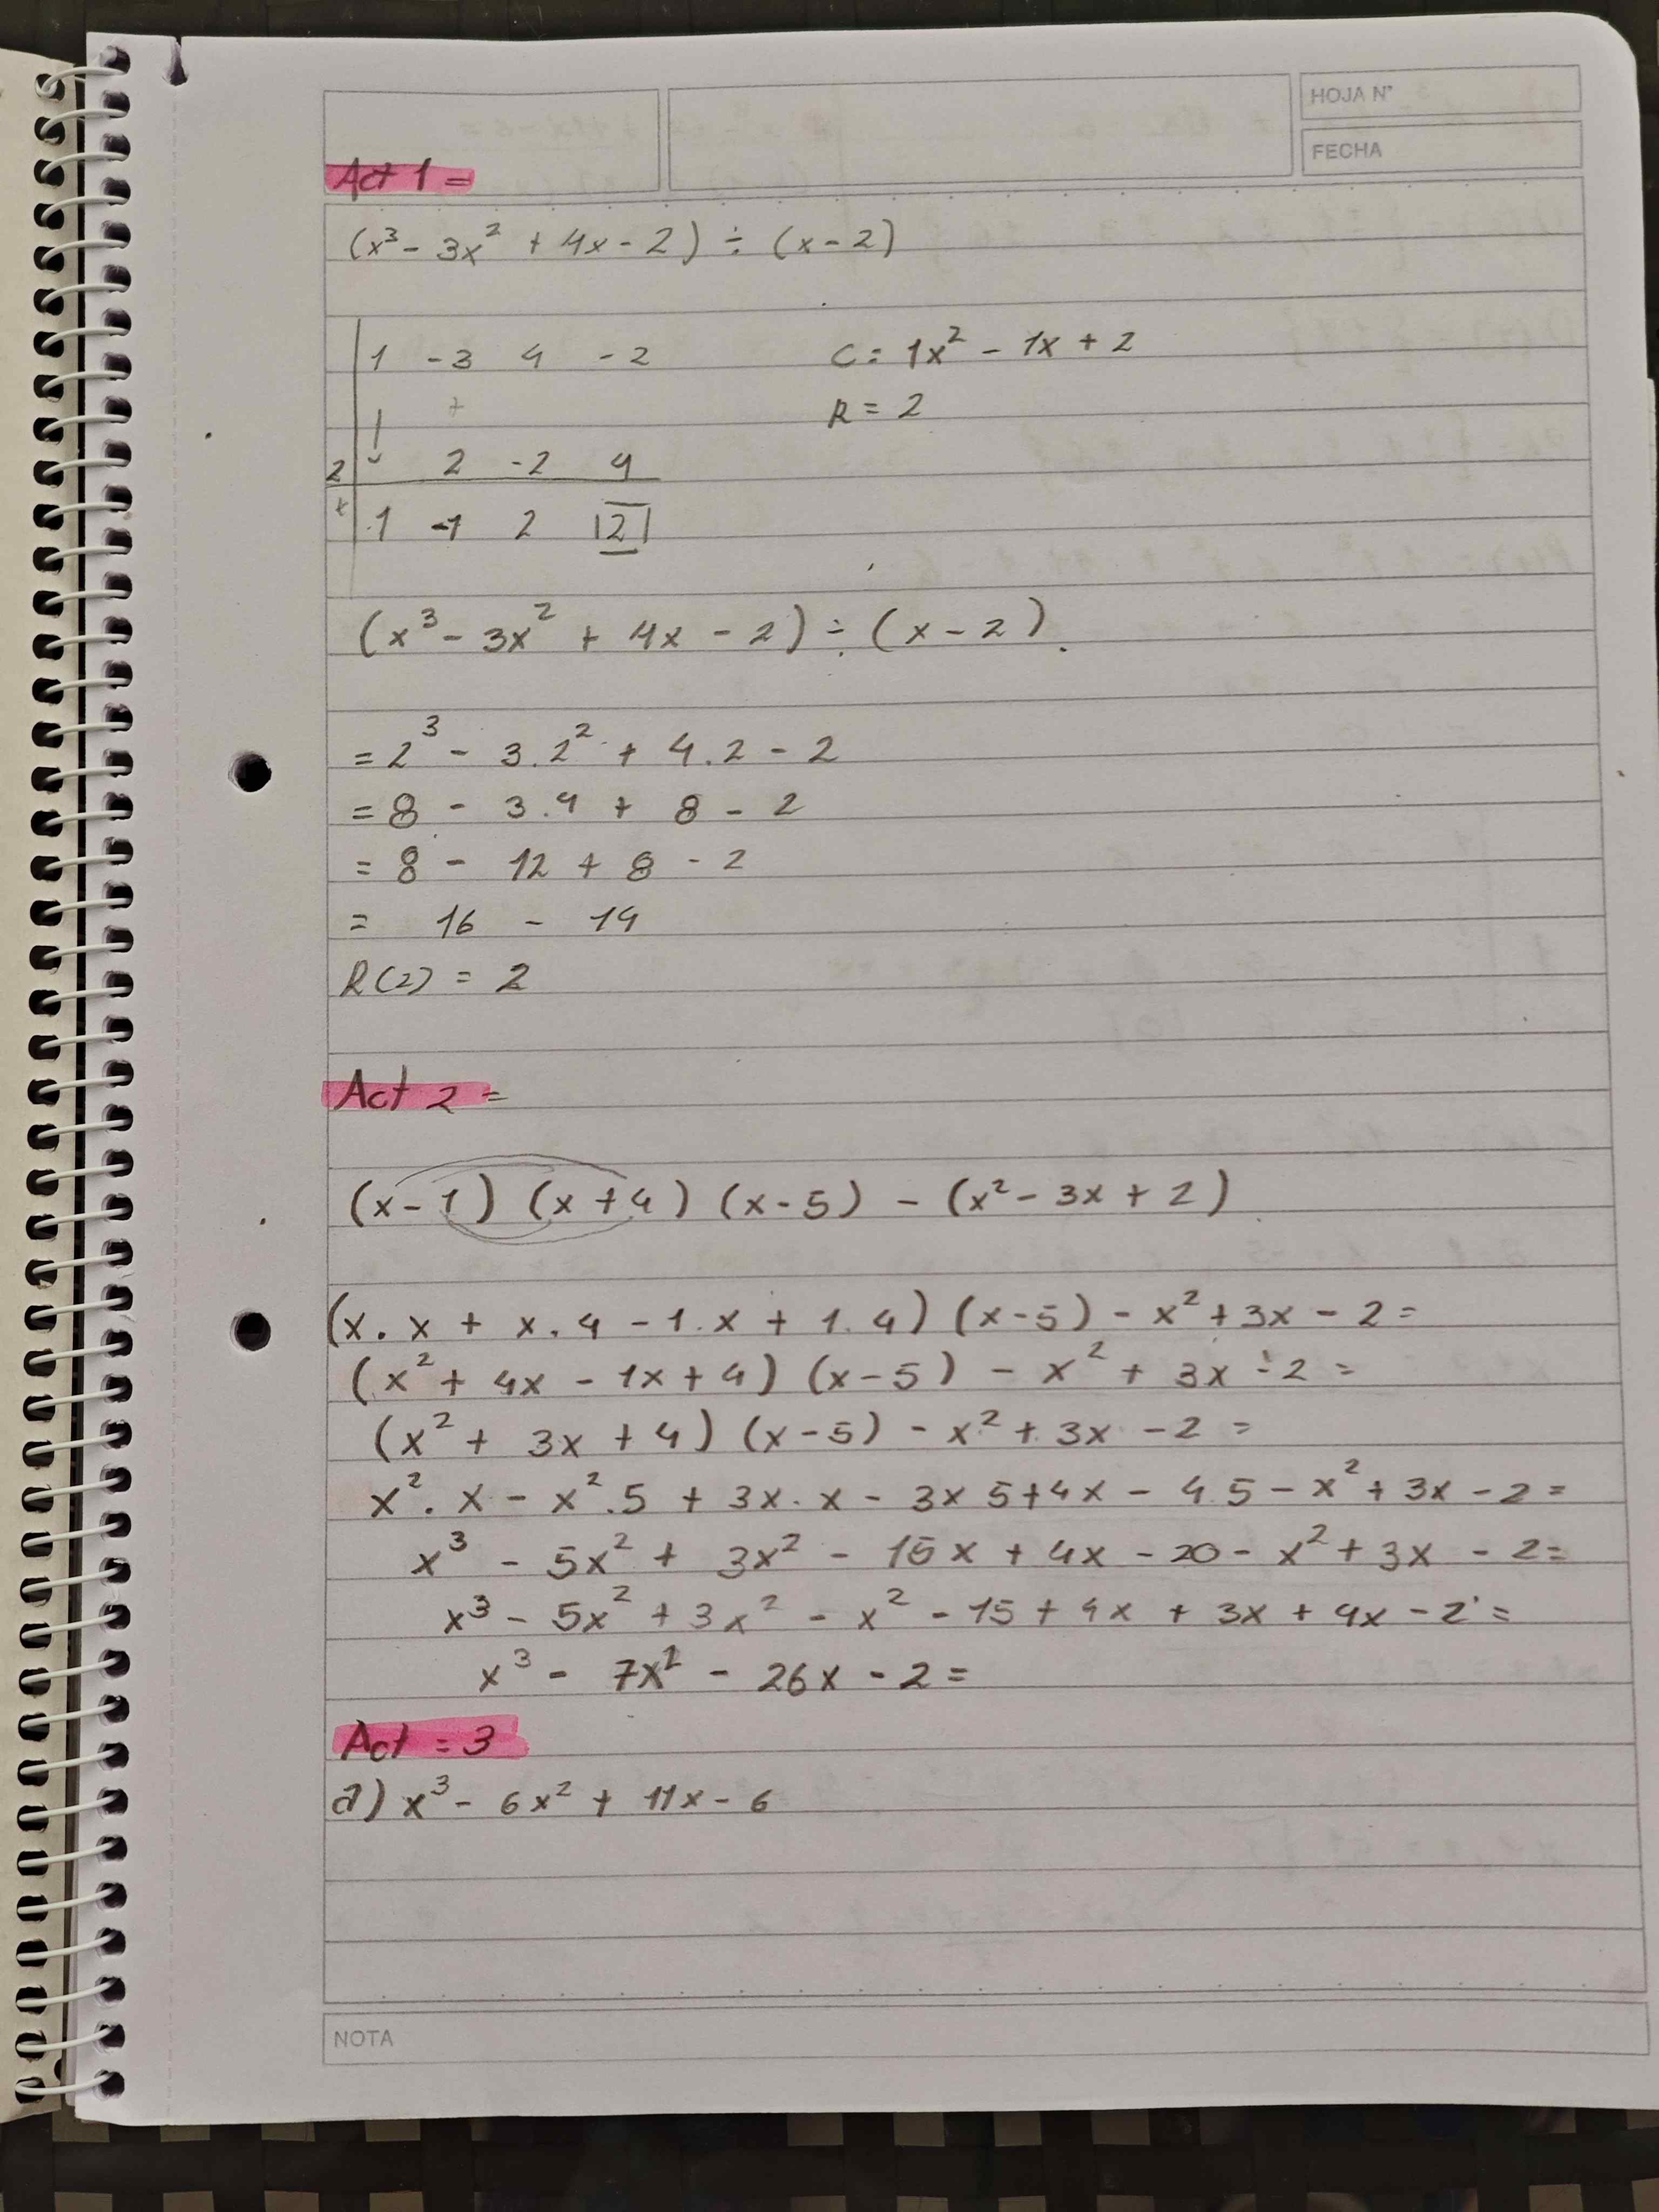 HOJA N°
FECHA
Act 1 =
(x³ - 3x² + 4x - 2) ÷ (x - 2)
1 -3 4 -2 C = 1x² - 1x + 2
+ R = 2
2 2 -2 4
+ 1 -1 2 2
(x³ - 3x² + 4x - 2) ÷ (x - 2).
= 2³ - 3.2² + 4.2 - 2
= 8 - 3.4 + 8 - 2
= 8 - 12 + 8 - 2
= 16 - 14
R(2) = 2
Act 2 =
(x - 1) (x + 4) (x - 5) - (x² - 3x + 2)
(x . x + x . 4 - 1 . x + 1 . 4) (x - 5) - x² + 3x - 2 =
(x² + 4x - 1x + 4) (x - 5) - x² + 3x - 2 =
(x² + 3x + 4) (x - 5) - x² + 3x - 2 =
x² . x - x² . 5 + 3x . x - 3x 5 + 4x - 4.5 - x² + 3x - 2 =
x³ - 5x² + 3x² - 15x + 4x - 20 - x² + 3x - 2 =
x³ - 5x² + 3x² - x² - 15 + 4x + 3x + 4x - 2 =
x³ - 7x² - 26x - 2 =
Act = 3
a) x³ - 6x² + 11x - 6
NOTA